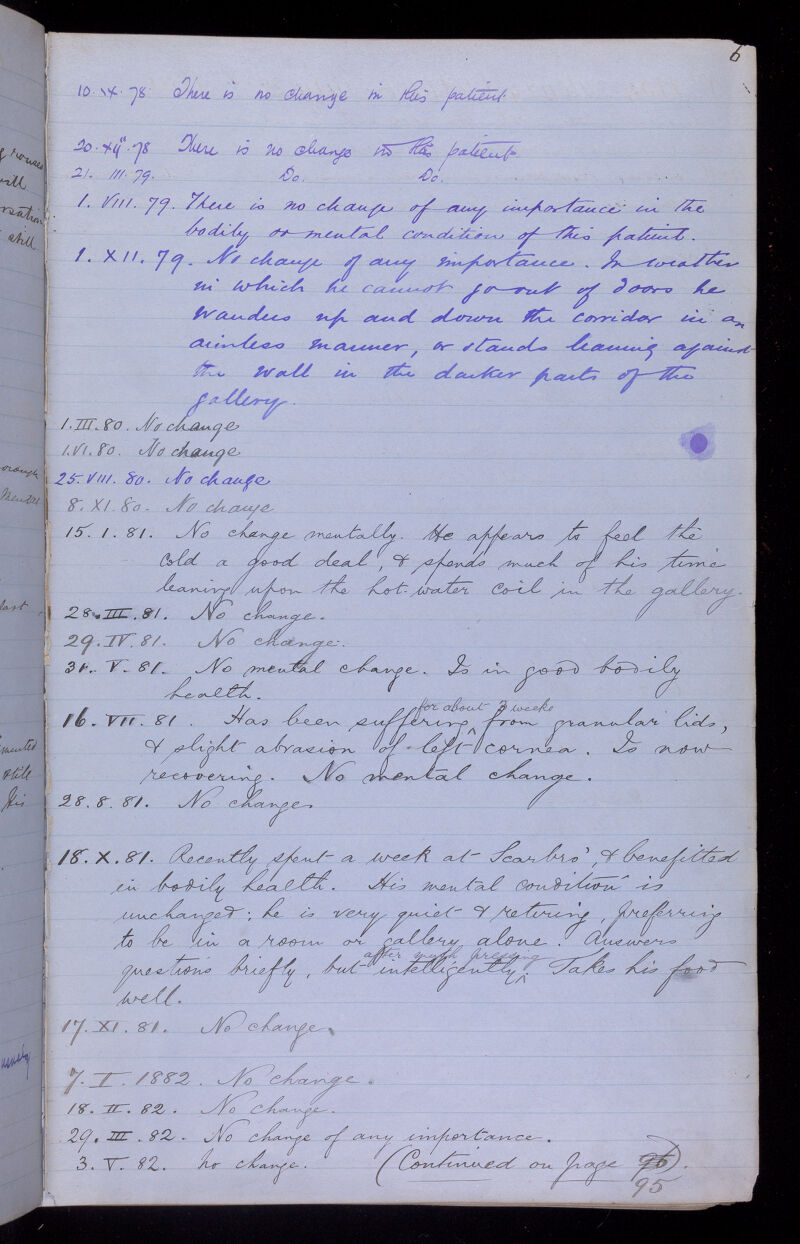 6
10.IX.78 There is no change in this patient
20.XII.78 There is no change in this patient
21. III. 79. Do. Do.
1. VIII. 79. There is no change of any importance in the
bodily or mental condition of this patient.
1. XII. 79. No change of any importance. In weather
in which he cannot go out of doors he
wanders up and down the corridor in an
aimless manner, or stands leaning against
the wall in the darker parts of the
gallery.
1.III.80. No change
1.VI.80. No change
25.VIII.80. No change
8.XI.80. No change
15.1.81. No change mentally. He appears to feel the
cold a good deal, & spends much of his time
leaning upon the hot-water coil in the gallery.
28.III.81. No change.
29.IV.81. No change.
31.V.81. No mental change. Is in good bodily
health.
for about 3 weeks
16.VII.81. Has been suffering ^ from granular lids,
& slight abrasion of left cornea. Is now
recovering. No mental change.
28.8.81. No change.
18.X.81. Recently spent a week at Scarbro', & benefitted
in bodily health. His mental condition is
unchanged; he is very quiet & retiring, preferring
to be in a room or gallery alone. Answers
after much pressing
questions briefly, but intelligently ^. Takes his food
well.
17.XI.81. No change.
7.I.1882. No change.
18.II.82. No change.
29.III.82. No change of any importance.
3.V.82. No change. (Continued on page 96).
95
will
still